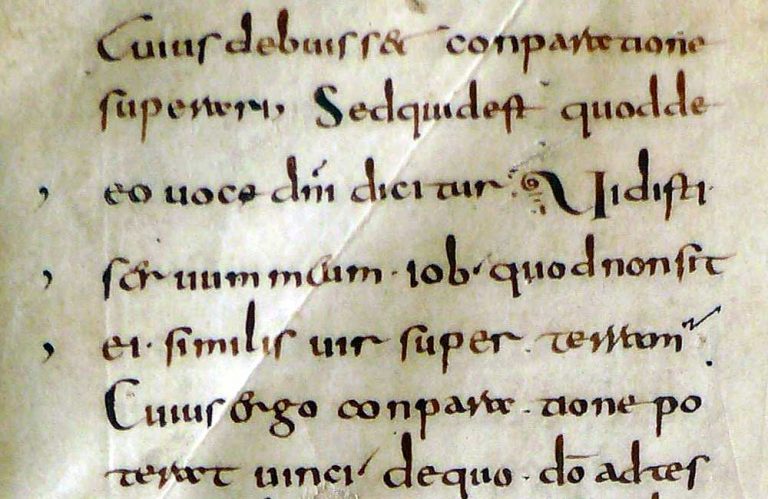 Cuius debuisset conparatione
superari, Sed quid est quod de
eo uoce dni dicitur Uidisti
seruum meum · iob · quod non sit
ei · similis uir super · terram
Cuius ergo conpara · tione po
terat uinci de quo · do adtes